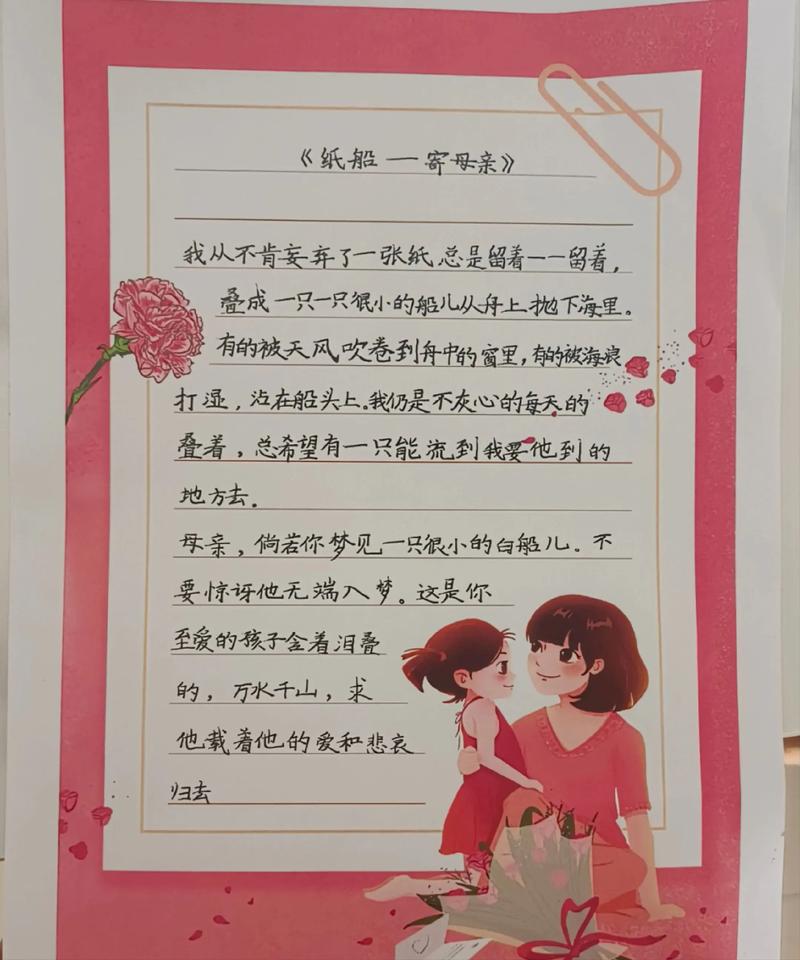 《纸船——寄母亲》
我从不肯妄弃了一张纸总是留着——留着，
叠成一只一只很小的船儿从舟上抛下海里。
有的被天风吹卷到舟中的窗里，有的被海浪
打湿，沾在船头上。我仍是不灰心的每天的
叠着，总希望有一只能流到我要他到的
地方去。
母亲，倘若你梦见一只很小的白船儿。不
要惊讶他无端入梦。这是你
至爱的孩子含着泪叠
的，万水千山，求
他载着他的爱和悲哀
归去